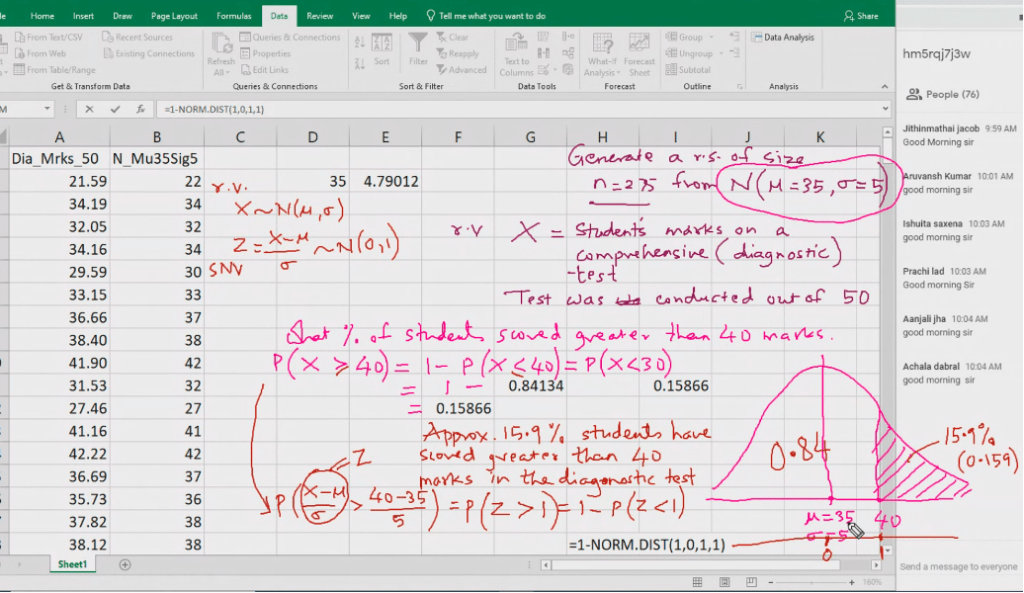 le Home Insert Draw Page Layout Formulas Data Review View Help Tell me what you want to do Share
From Text/CSV Recent Sources
From Web Existing Connections
From Table/Range
Get & Transform Data
Refresh All
Queries & Connections
Properties
Edit Links
Queries & Connections
Sort
Filter
Clear
Reapply
Advanced
Sort & Filter
Text to Columns
Data Tools
What-If Analysis
Forecast Sheet
Forecast
Group
Ungroup
Subtotal
Outline
Data Analysis
Analysis
M fx =1-NORM.DIST(1,0,1,1)
A B C D E F G H I J K
Dia_Mrks_50 N_Mu35Sig5
21.59 22 35 4.79012
34.19 34
32.05 32
34.16 34
29.59 30
33.15 33
36.66 37
38.40 38
41.90 42
31.53 32 0.84134 0.15866
27.46 27 0.15866
41.16 41
42.22 42
36.69 37
35.73 36
37.82 38
38.12 38 =1-NORM.DIST(1,0,1,1)
Generate a r.s. of size
n=235 from N(μ=35, σ=5)
r.v.
X~N(μ,σ)
Z = X-μ / σ ~N(0,1)
SNV
r.v X = Students' marks on a
comprehensive (diagnostic)
-test
Test was conducted out of 50
What % of students scored greater than 40 marks.
P(X ≥ 40) = 1 - P(X ≤ 40) = P(X<30)
= 1 -
=
Approx. 15.9% students have
scored greater than 40
marks in the diagonostic test
Z
P(X-μ / σ > 40-35 / 5) = P(Z > 1) = 1 - P(Z < 1)
0.84
15.9%
(0.159)
μ=35 40
σ=5
0 1
Sheet1
160%
hm5rqj7j3w
People (76)
Jithinmathai jacob 9:59 AM
Good Morning sir
Aruvansh Kumar 10:01 AM
good morning sir
Ishuita saxena 10:03 AM
good morning sir
Prachi lad 10:03 AM
Good Morning sir
Aanjali jha 10:04 AM
good morning sir
Achala dabral 10:04 AM
good morning sir
Send a message to everyone